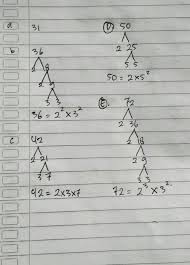 a 31
b 36
2 18
2 9
3 3
36 = 2² x 3²
c 42
2 21
3 7
42 = 2x3x7
D. 50
2 25
5 5
50 = 2 x 5²
E. 72
2 36
2 18
2 9
3 3
72 = 2³ x 3²